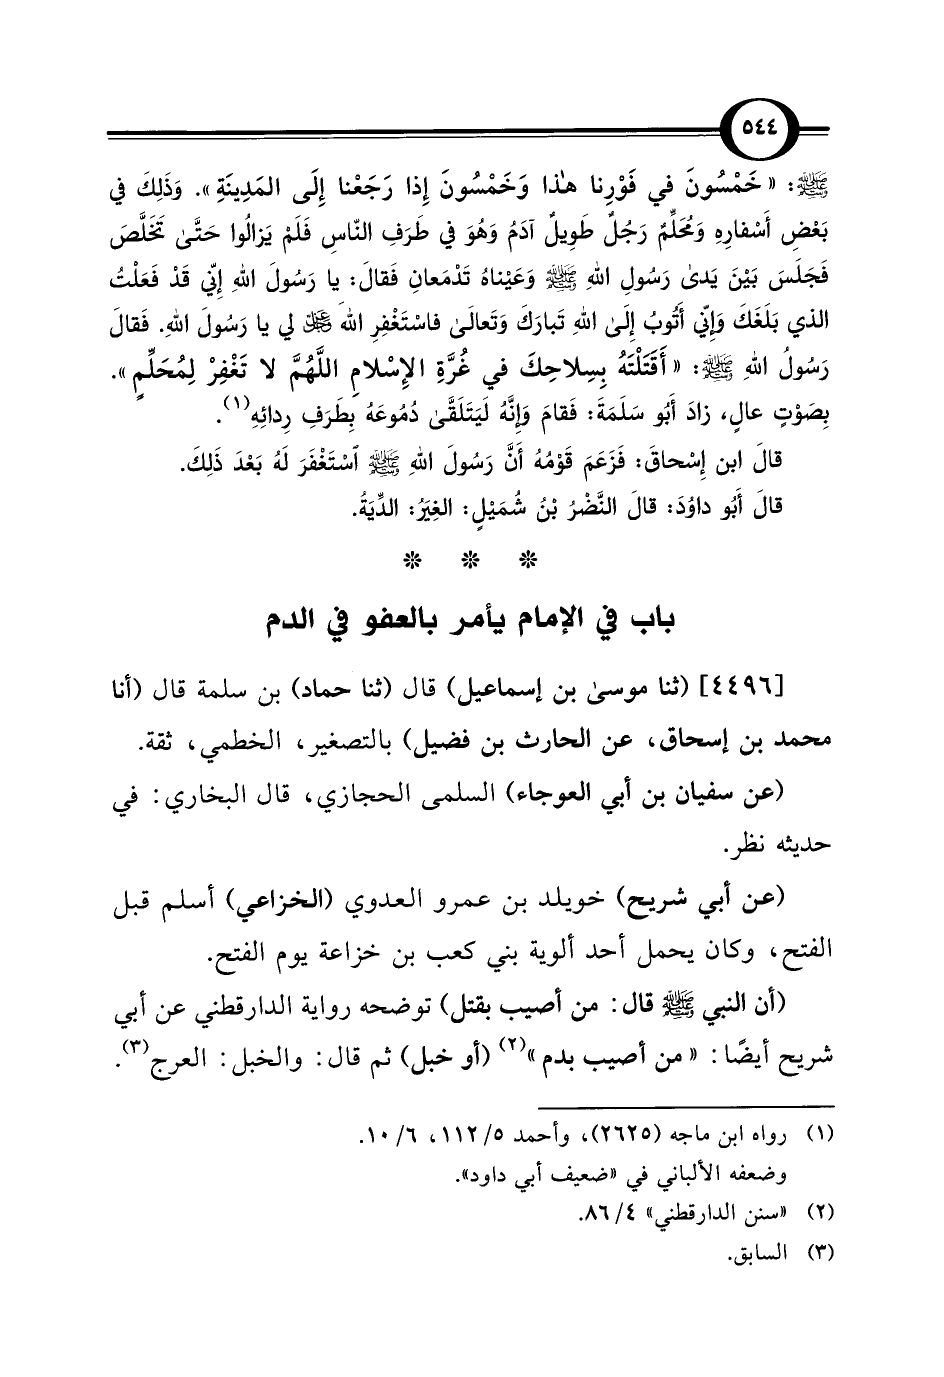 ٥٤٤
ﷺ: « خَمْسُونَ في فَوْرِنا هٰذا وَخَمْسُونَ إِذا رَجَعْنا إِلَى المَدِينَةِ ». وَذَلِكَ في
بَعْضِ أَسْفارِهِ وَمُحَلِّمٌ رَجُلٌ طَوِيلٌ آدَمُ وَهُوَ في طَرَفِ النّاسِ فَلَمْ يَزالُوا حَتَّىٰ تَخَلَّصَ
فَجَلَسَ بَيْنَ يَدىٰ رَسُولِ اللهِ ﷺ وَعَيْناهُ تَدْمَعانِ فَقالَ: يا رَسُولَ اللهِ إِنّي قَدْ فَعَلْتُ
الذي بَلَغَكَ وَإِنّي أَتُوبُ إِلَىٰ اللهِ تَبارَكَ وَتَعالَىٰ فاسْتَغْفِرِ اللهَ ﷻ لي يا رَسُولَ اللهِ. فَقالَ
رَسُولُ اللهِ ﷺ: « أَقَتَلْتَهُ بِسِلاحِكَ في غُرَّةِ الإِسْلامِ اللَّهُمَّ لا تَغْفِرْ لِمُحَلِّمٍ ».
بِصَوْتٍ عالٍ، زادَ أَبُو سَلَمَةَ: فَقامَ وَإِنَّهُ لَيَتَلَقَّىٰ دُمُوعَهُ بِطَرَفِ رِدائِهِ(١).
قالَ ابن إِسْحاقَ: فَزَعَمَ قَوْمُهُ أَنَّ رَسُولَ اللهِ ﷺ ٱسْتَغْفَرَ لَهُ بَعْدَ ذَلِكَ.
قالَ أَبُو داوُدَ: قالَ النَّضْرُ بْنُ شُمَيْلٍ: الغِيَرُ: الدِّيَةُ.
* * *
باب في الإمام يأمر بالعفو في الدم
[٤٤٩٦] (ثنا موسىٰ بن إسماعيل) قال (ثنا حماد) بن سلمة قال (أنا
محمد بن إسحاق، عن الحارث بن فضيل) بالتصغير، الخطمي، ثقة.
(عن سفيان بن أبي العوجاء) السلمى الحجازي، قال البخاري: في
حديثه نظر.
(عن أبي شريح) خويلد بن عمرو العدوي (الخزاعي) أسلم قبل
الفتح، وكان يحمل أحد ألوية بني كعب بن خزاعة يوم الفتح.
(أن النبي ﷺ قال: من أصيب بقتل) توضحه رواية الدارقطني عن أبي
شريح أيضًا: « من أصيب بدم »(٢) (أو خبل) ثم قال: والخبل: العرج(٣).
(١) رواه ابن ماجه (٢٦٢٥)، وأحمد ١١٢/٥، ١٠/٦.
وضعفه الألباني في «ضعيف أبي داود».
(٢) «سنن الدارقطني» ٨٦/٤.
(٣) السابق.